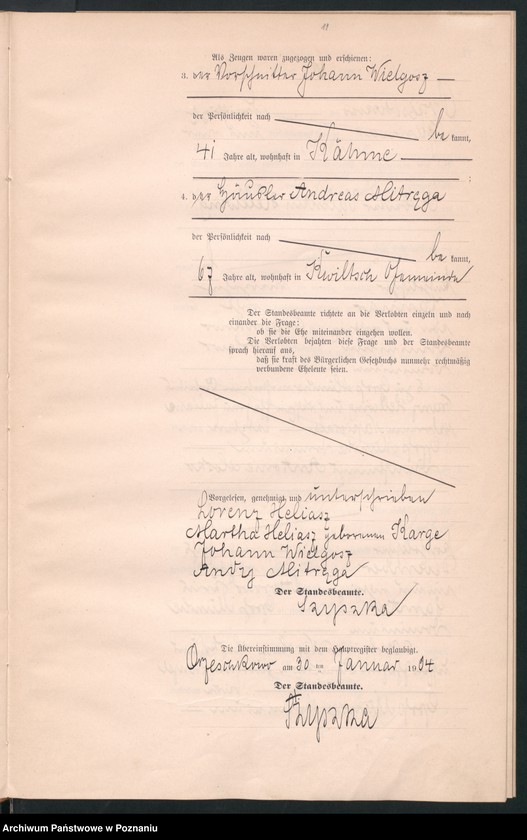 Als Zeugen waren zugezogen und erschienen:
3. der Vorschnitter Johann Wielgosz
der Persönlichkeit nach
be kannt,
41 Jahre alt, wohnhaft in Kähme
4. der Häusler Andreas Mitręga
der Persönlichkeit nach
be kannt,
67 Jahre alt, wohnhaft in Kwiltsch Gemeinde
Der Standesbeamte richtete an die Verlobten einzeln und nach
einander die Frage:
ob sie die Ehe miteinander eingehen wollen.
Die Verlobten bejahten diese Frage und der Standesbeamte
sprach hierauf aus,
daß sie kraft des Bürgerlichen Gesetzbuchs nunmehr rechtmäßig
verbundene Eheleute seien.
Vorgelesen, genehmigt und unterschrieben
Lorenz Heliasz
Martha Heliasz geborenen Karge
Johann Wielgosz
Andrz Mitręga
Der Standesbeamte.
Szyszka
Die Übereinstimmung mit dem Hauptregister beglaubigt.
Orzeschkowo am 30 ten Januar 1904
Der Standesbeamte.
Szyszka
Archiwum Państwowe w Poznaniu